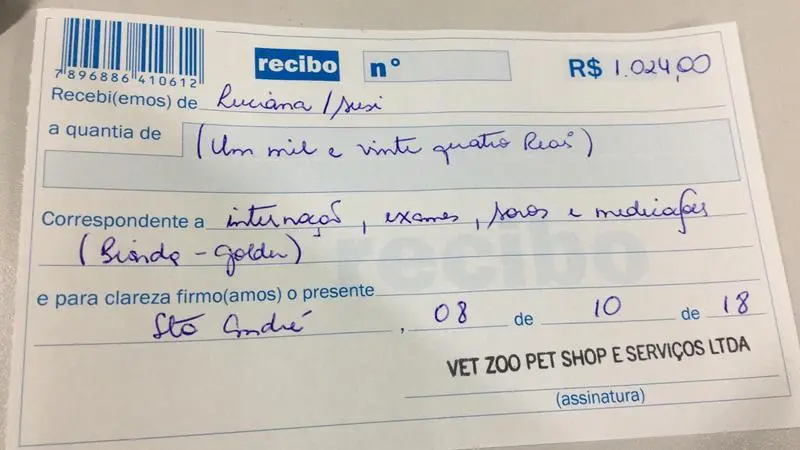 7 896886 410612
recibo nº R$ 1.024,00
Recebi(emos) de Luciana / Susi
a quantia de (Um mil e vinte quatro Reais)
Correspondente a internação, exames, soros e medicações
(Bionda - golden)
recibo
e para clareza firmo(amos) o presente
Sto André, 08 de 10 de 18
VET ZOO PET SHOP E SERVIÇOS LTDA
(assinatura)